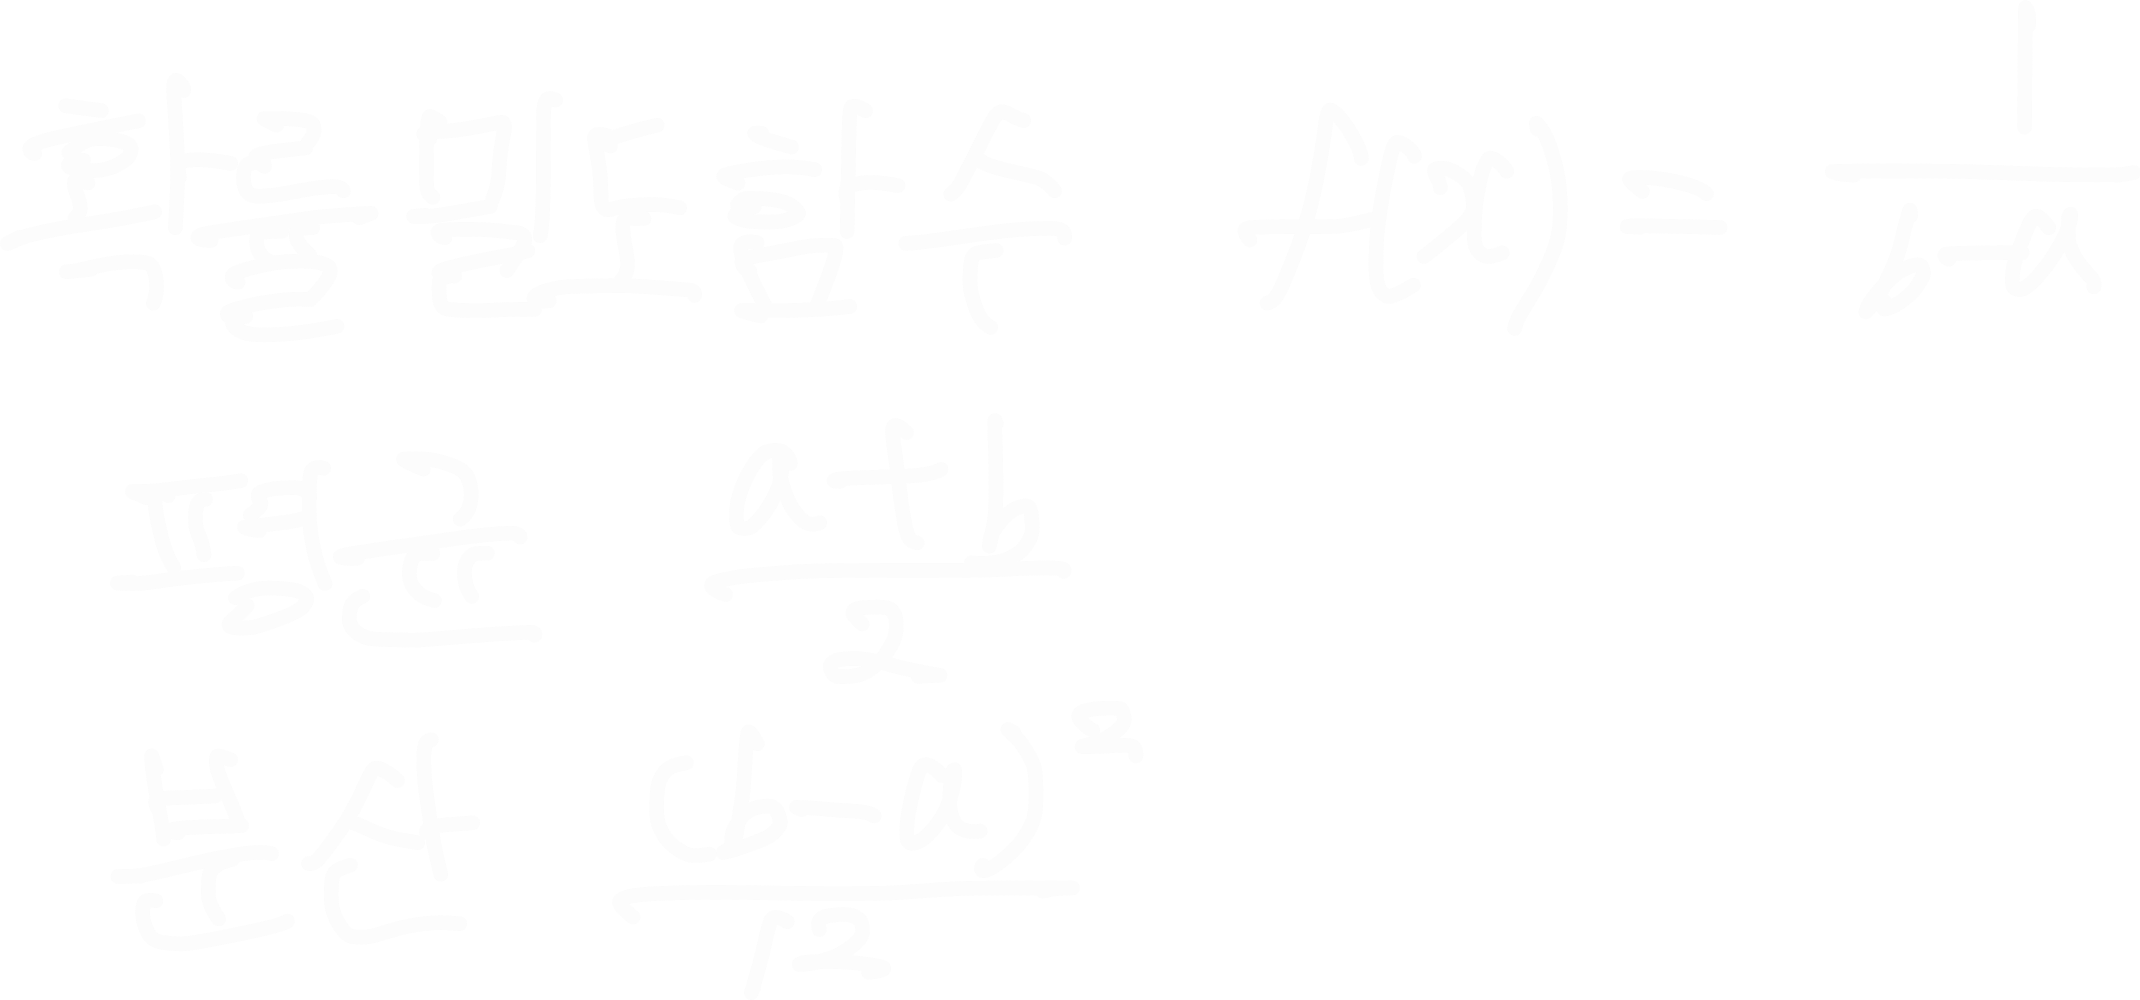 확률밀도함수 f(x) = 1/(b-a)
평균 (a+b)/2
분산 (b-a)²/12